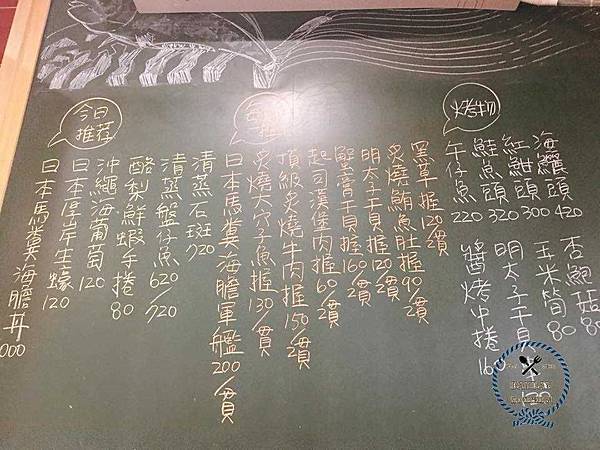 烤物
海鱺頭 420
紅魽頭 300
鮭魚頭 320
午仔魚 220
杏鮑菇 80
玉米筍 80
明太子干貝
醬烤中捲 160
黑草握 120/貫
炙燒鮪魚肚握 90/貫
明太子干貝握 120/貫
蟹膏干貝握 160/貫
起司漢堡肉握 60/貫
頂級炙燒牛肉握 150/貫
炙燒大穴子魚握 130/貫
日本馬糞海膽軍艦 200/貫
今日推荐
清蒸石斑 720
清蒸盤仔魚 620/720
酪梨鮮蝦手捲 80
沖繩海葡萄 120
日本厚岸生蠔 120
日本馬糞海膽丼